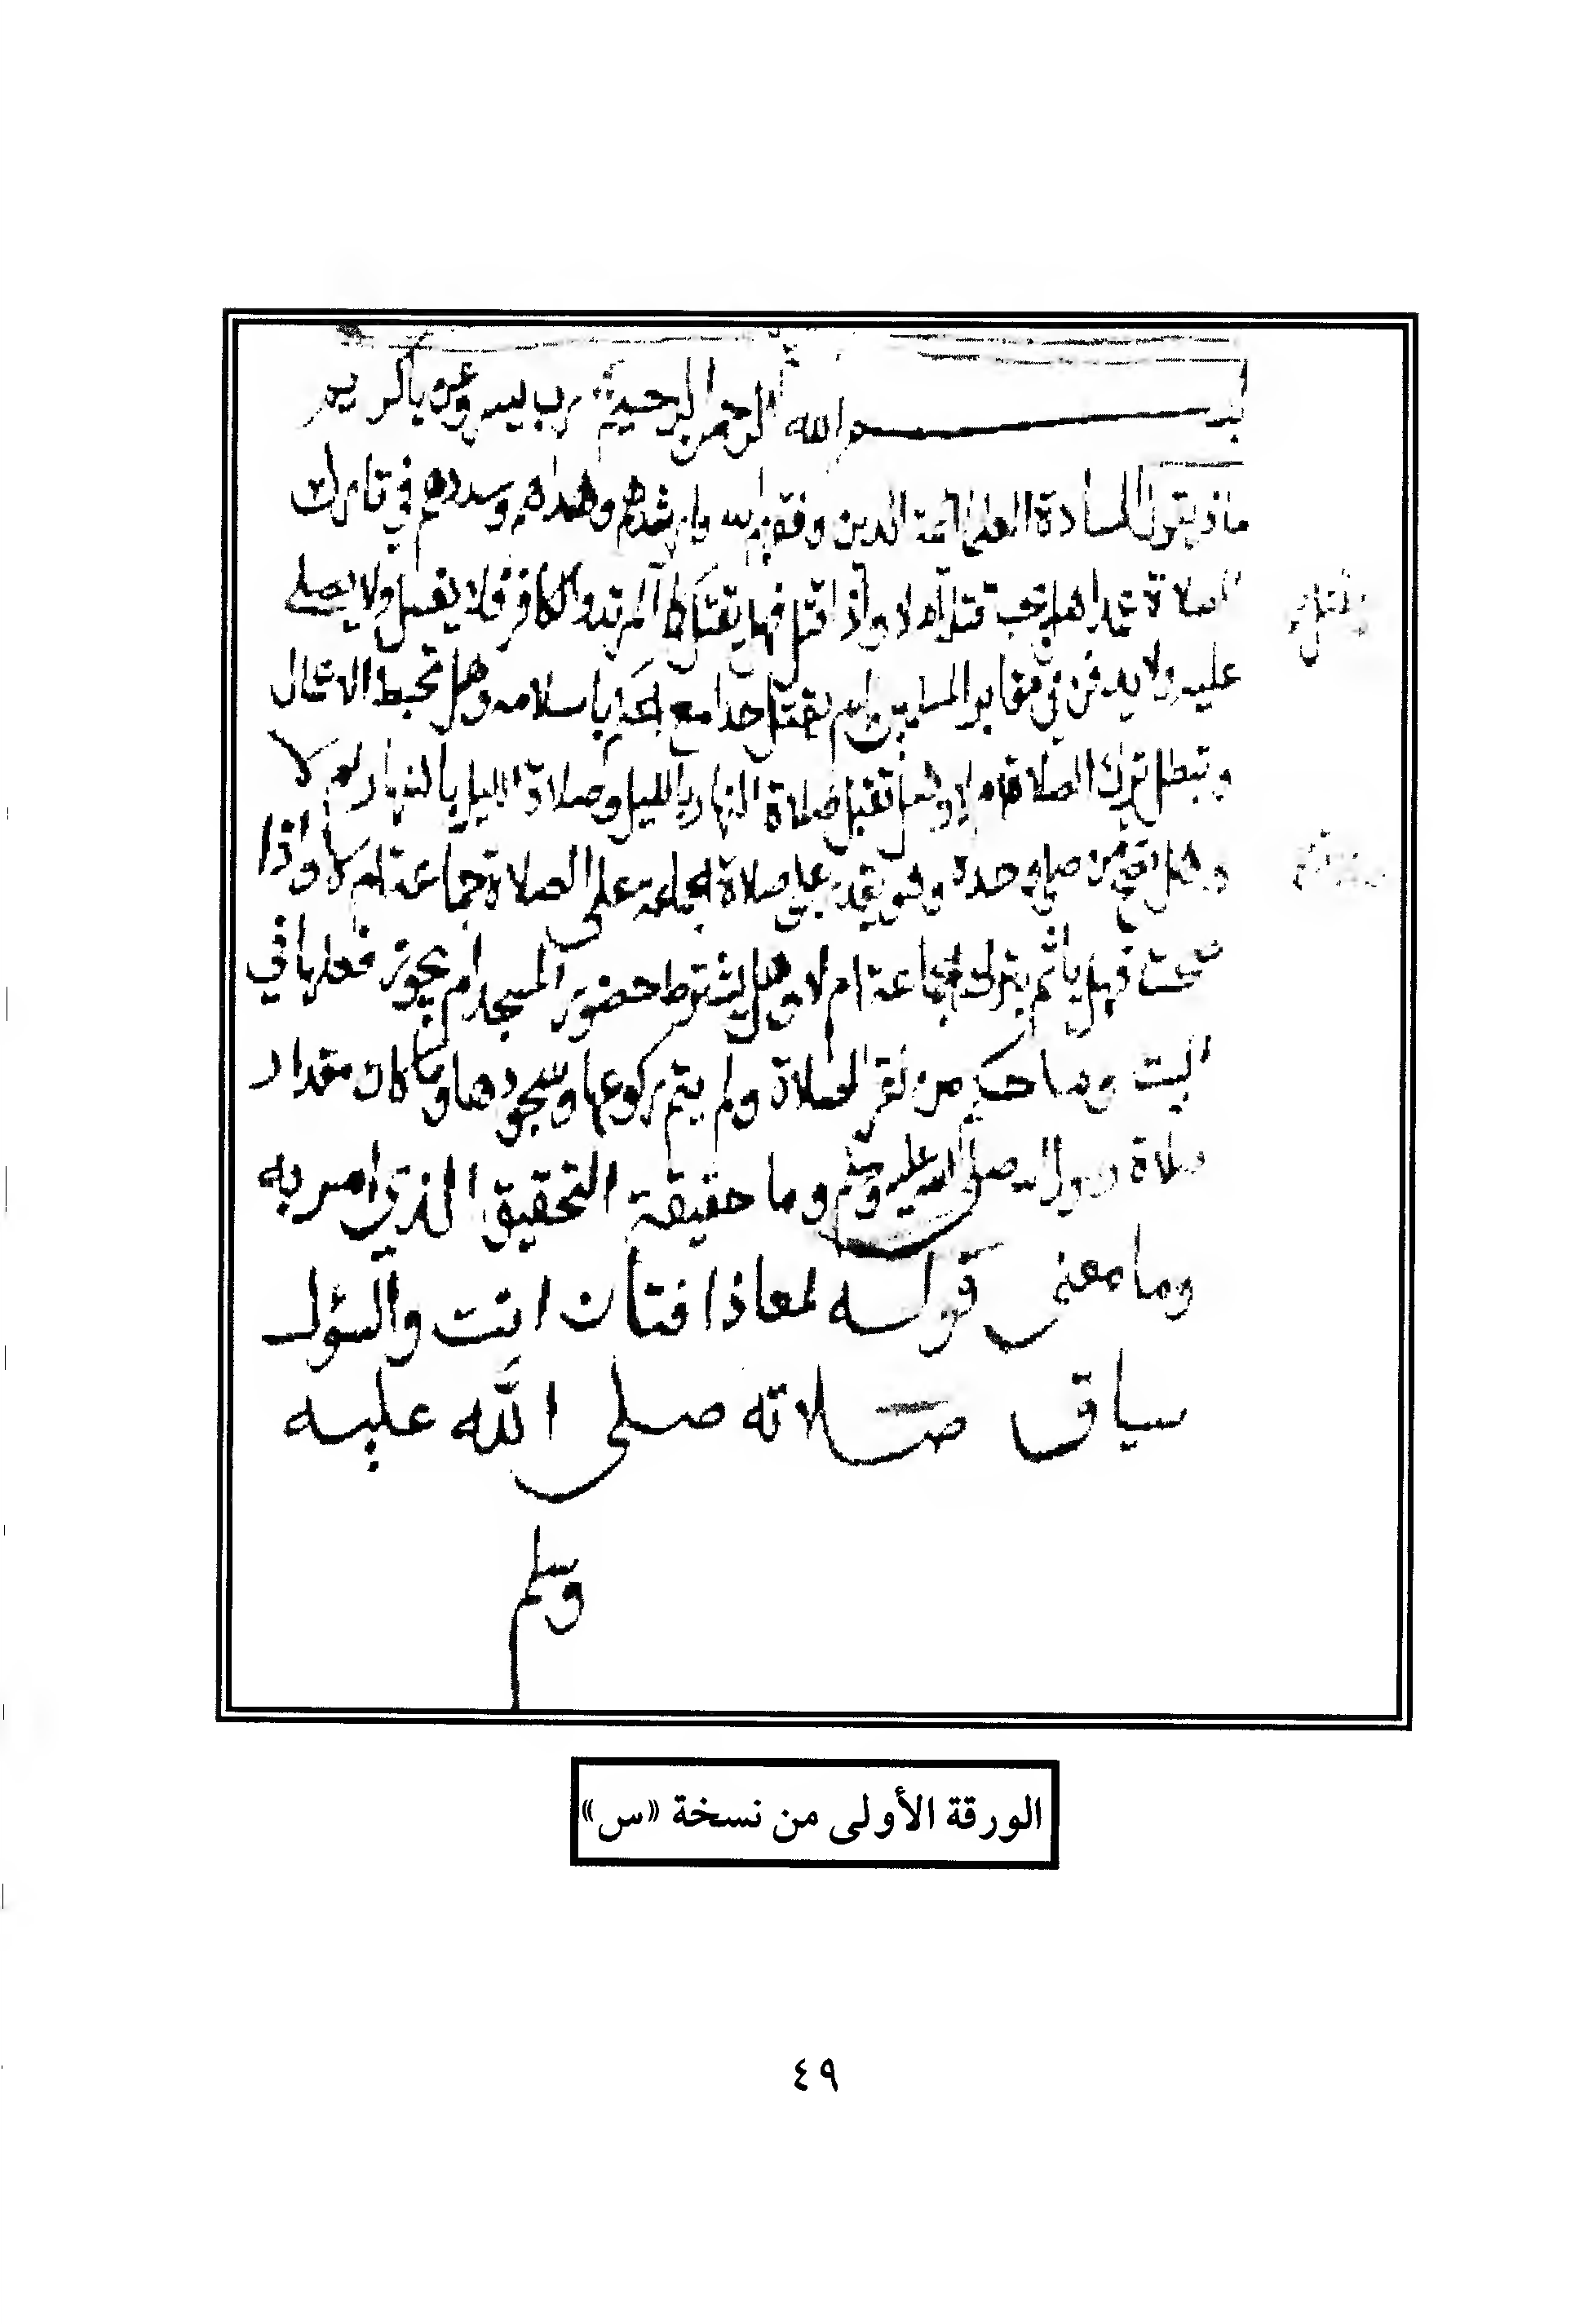 بسم الله الرحمن الرحيم رب يسر وعن ياكريم
ماذ يقول السادة العلما ائمة الدين وفقهم الله وارشدهم وهداهم وسددهم في تارك
الصلاة عمدا هل يجب قتله ام لا واذا قتل فهل يقتل كما المرتد والكافر فلا يغسل ولا يصلى
عليه ولا يدفن في مقابر المسلمين ام يقتل حدا مع الحكم باسلامه وهل تحبط الاعمال
وتبطل بترك الصلاة ام لا وهل تقبل صلاة النهار بالليل وصلاة الليل بالنهار ام لا
وهل تصح من صلى وحده وهو يقدر على صلاة الجماعة على الصلاة جماعة ام لا واذا
صحت فهل ياثم بترك الجماعة ام لا وهل يشترط حضور المسجد ام يجوز فعلها في
البيت وما حكم من نقر الصلاة ولم يتم ركوعها وسجودها وما كان مقدار
صلاة رسول الله صلى الله عليه وسلم وما حقيقة التحقيق الذي امر به
وما معنى قوله لمعاذ افتان انت والسؤل
سياق صلاته صلى الله عليه
وسلم
الورقة الأولى من نسخة «س»
٤٩